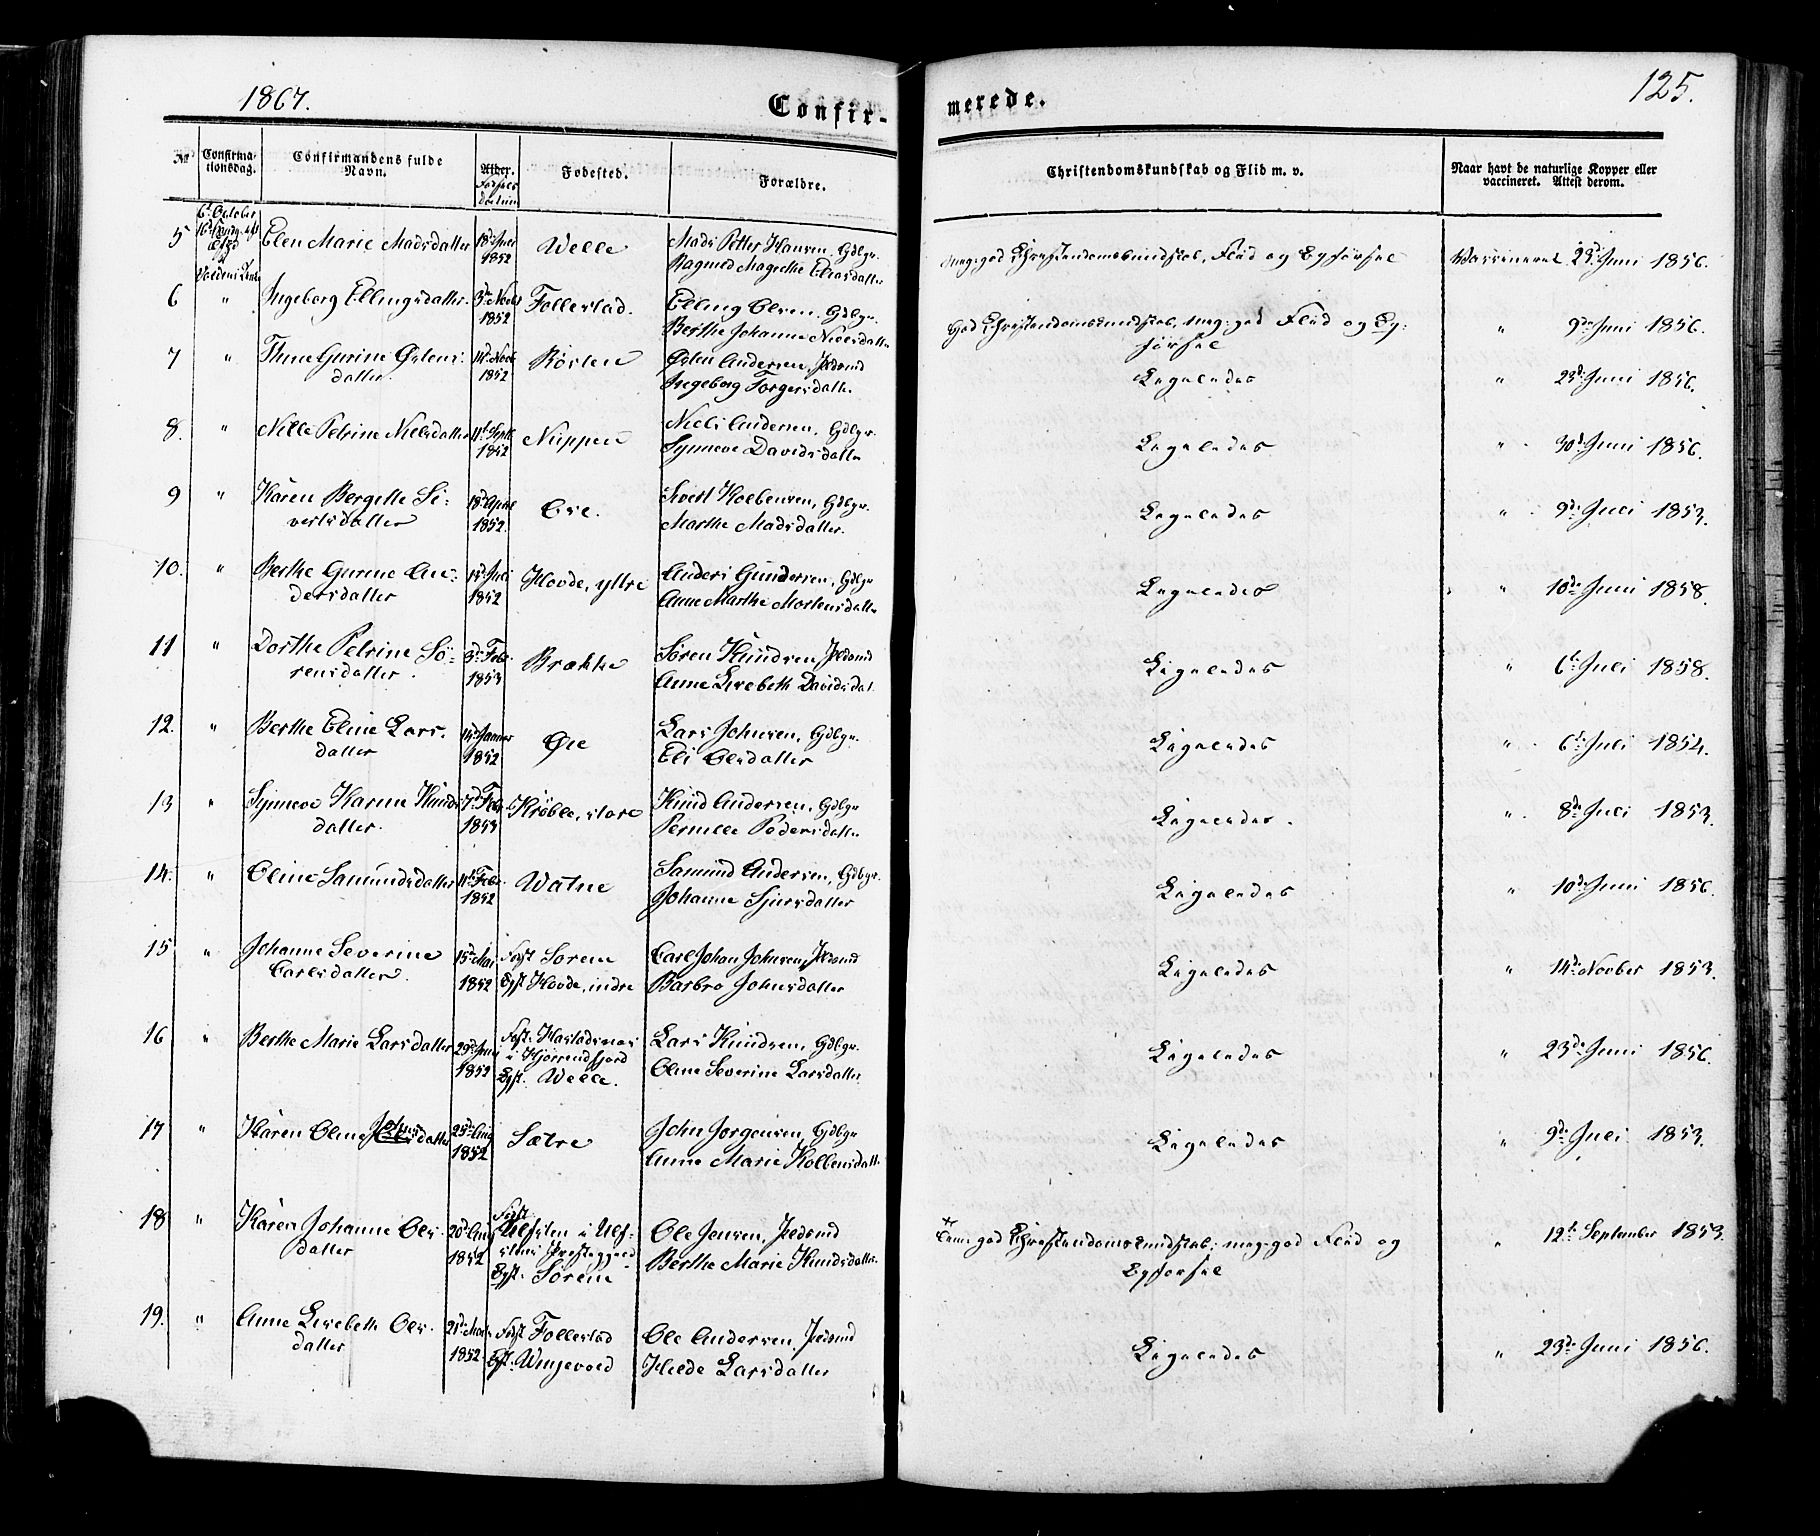 1867.
125.
Confir-
merede.
No
Confirma-
tionsdag.
Confirmandens fulde
Navn.
Alder.
Fødested.
Forældre.
Christendomskundskab og Flid m. v.
Naar havt de naturlige Kopper eller
vaccineret. Attest derom.
6t October
5 Elen Marie Madsdatter 18d Juni
1852
Welle
Mads Petter Hansen, Gdbgr.
Ragnild Magrethe Eliasdatter
meg: god Christendomskundskab, Flid og Opførsel
Vaccineret 23d Juni 1856.
6 " Ingeborg Ellingsdatter 3de Novbr
1852
Follestad.
Elling Olsen. Gdbgr.
Berthe Johanne Nielsdatter
God Christendomskundskab, meg: god Flid og Op-
førsel
" 9de Juni 1856.
7 " Thine Gurine Østens-
datter.
14d Novb
1852
Rösten
Østen Andersen, Inderst
Ingeborg Torgersdatter
Ligeledes
" 23d Juni 1856.
8. " Nille Petrine Nielsdatter 11t Septb
1852
Nuppen
Niels Andersen, Gdbgr.
Synneve Davidsdatter
Ligeledes
" 30d Juni 1856.
9 " Karen Bergette Si-
vertsdatter
18d April
1852.
Ose.
Sivert Kolbensen, Gdbgr.
Marthe Madsdatter.
Ligeledes
" 9de Juli 1853.
10. " Berthe Gurine An-
dersdatter
12d Juli
1852
Hovde, yttre
Anders Gundersen, Gdbgr
Anne Marthe Mortensdatter
Ligeledes
" 10de Juni 1858.
11 " Dorthe Petrine Sö-
rensdatter
3de Feb.
1853
Brække
Sören Knudsen Inderst
Anne Lisebeth Davidsdat.
Ligeledes
" 6t Juli 1858.
12. " Berthe Eline Lars-
datter
14d Januar
1852
Øie
Lars Johnsen, Gdbgr.
Eli Olsdatter
Ligeledes
" 6t Juli 1854.
13 " Synneve Karine Knuds-
datter.
7d Feb.
1853
Kröble, store
Knud Andersen, Gdbgr
Pernille Pedersdatter
Ligeledes.
" 8de Juli 1853.
14. " Oline Samundsdatter 11t Feb.
1852
Watne
Samund Andersen, Gdbgr.
Johanne Sjursdatter
Ligeledes
" 10de Juni 1856.
15 " Johanne Severine
Carlsdatter.
15d Mai
1852
Fdst Sorem
Opst Hovde, indre
Carl Johan Johnsen, Inderst
Barbro Johnsdatter
Ligeledes
" 14de Novber 1853.
16 " Berthe Marie Larsdatter 29d Juni
1852
Fdst. Hastadsnes
i Hjörrendfjord
Opst. Welle.
Lars Knudsen, Gdbgr.
Oline Severine Larsdatter
Ligeledes
" 23de Juni 1856.
17 " Karen Oline Johnsdatter 25d Aug
1852
Sætre
John Jorgensen, Gdbgr
Anne Marie Kolbensdatt.
Ligeledes
" 9de Juli 1853.
18 " Karen Johanne Ols-
datter
20d Aug
1852
Fdst.
Ulfsten i Ulf-
stens Præstegjeld
Opst. Sorem
Ole Jensen, Inderst
Berthe Marie Knudsdatter
god Christendomskundskab; meg: god Flid og
Opførsel
" 12t September 1853.
19. " Anne Lisebeth Ols-
datter
21d Marts
1852
Fdst Follestad
Opst. Wingevold
Ole Andersen, Inderst
Helde Larsdatter
Ligeledes
" 23de Juni 1856.